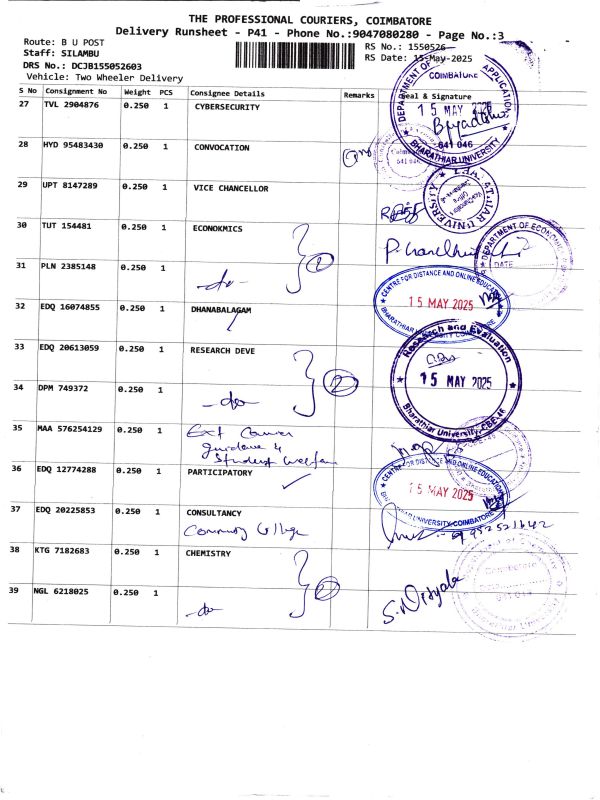 THE PROFESSIONAL COURIERS, COIMBATORE
Delivery Runsheet - P41 - Phone No.:9047080280 - Page No.:3
Route: B U POST
RS No.: 1550526
Staff: SILAMBU
RS Date: 15-May-2025
DRS No.: DCJB155052603
Vehicle: Two Wheeler Delivery
S No Consignment No Weight PCS Consignee Details Remarks Seal & Signature
27 TVL 2904876 0.250 1 CYBERSECURITY
DEPARTMENT OF APPLICATION
COIMBATORE
15 MAY 2025
641 046
BHARATHIAR UNIVERSITY
28 HYD 95483430 0.250 1 CONVOCATION
641 046
29 UPT 8147289 0.250 1 VICE CHANCELLOR
30 TUT 154481 0.250 1 ECONOKMICS
2
DEPARTMENT OF ECONOMICS
DATE
31 PLN 2385148 0.250 1 -do-
CENTRE FOR DISTANCE AND ONLINE EDUCATION
15 MAY 2025
BHARATHIAR UNIVERSITY COIMBATORE
32 EDQ 16074855 0.250 1 DHANABALAGAM
33 EDQ 20613059 0.250 1 RESEARCH DEVE
2
Research and Evaluation
15 MAY 2025
Bharathiar University, CBE-46
34 DPM 749372 0.250 1 -do-
35 MAA 576254129 0.250 1 Ext Career
guidance &
Student welfare
36 EDQ 12774288 0.250 1 PARTICIPATORY
CENTRE FOR DISTANCE AND ONLINE EDUCATION
15 MAY 2025
BHARATHIAR UNIVERSITY COIMBATORE
37 EDQ 20225853 0.250 1 CONSULTANCY
Community College
38 KTG 7182683 0.250 1 CHEMISTRY
2
Coimbatore
641 046
39 NGL 6218025 0.250 1 -do-
S. Vidyala